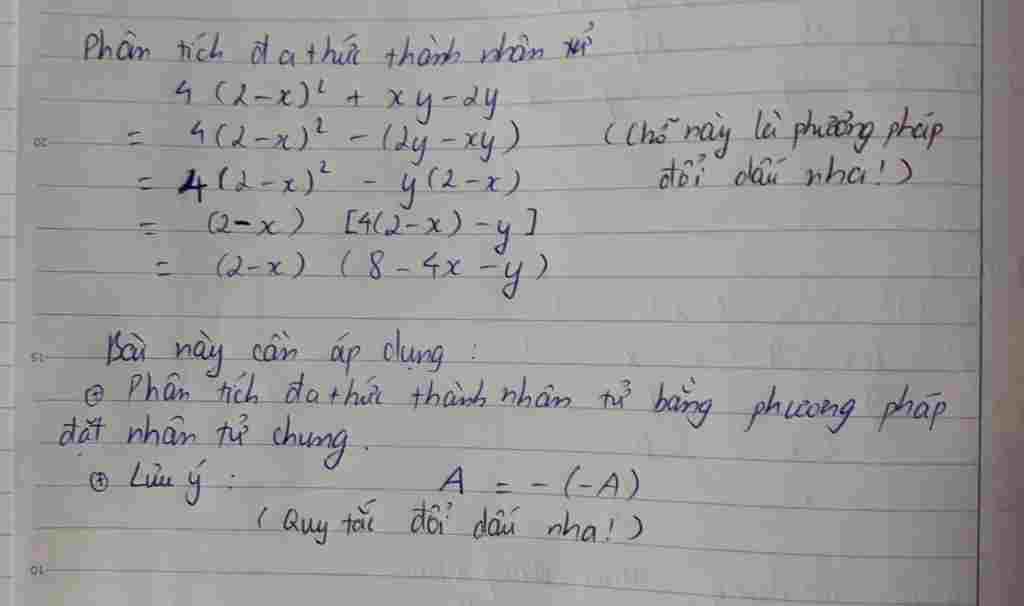 Phân tích đa thức thành nhân tử
4(2-x)² + xy-2y
= 4(2-x)² - (2y-xy) (Chỗ này là phương pháp
= 4(2-x)² - y(2-x) đổi dấu nha!)
= (2-x) [4(2-x)-y]
= (2-x) (8-4x-y)
Bài này cần áp dụng:
⊕ Phân tích đa thức thành nhân tử bằng phương pháp
đặt nhân tử chung.
⊕ Lưu ý: A = -(-A)
(Quy tắc đổi dấu nha!)